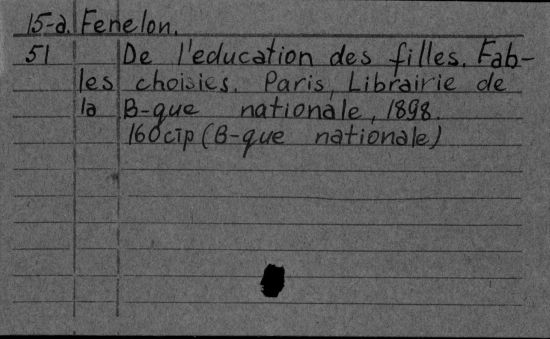 15-д. Fenelon.
51 De l'education des filles. Fab-
les choisies. Paris, Librairie de
la B-que nationale, 1898.
160 стр (B-que nationale)